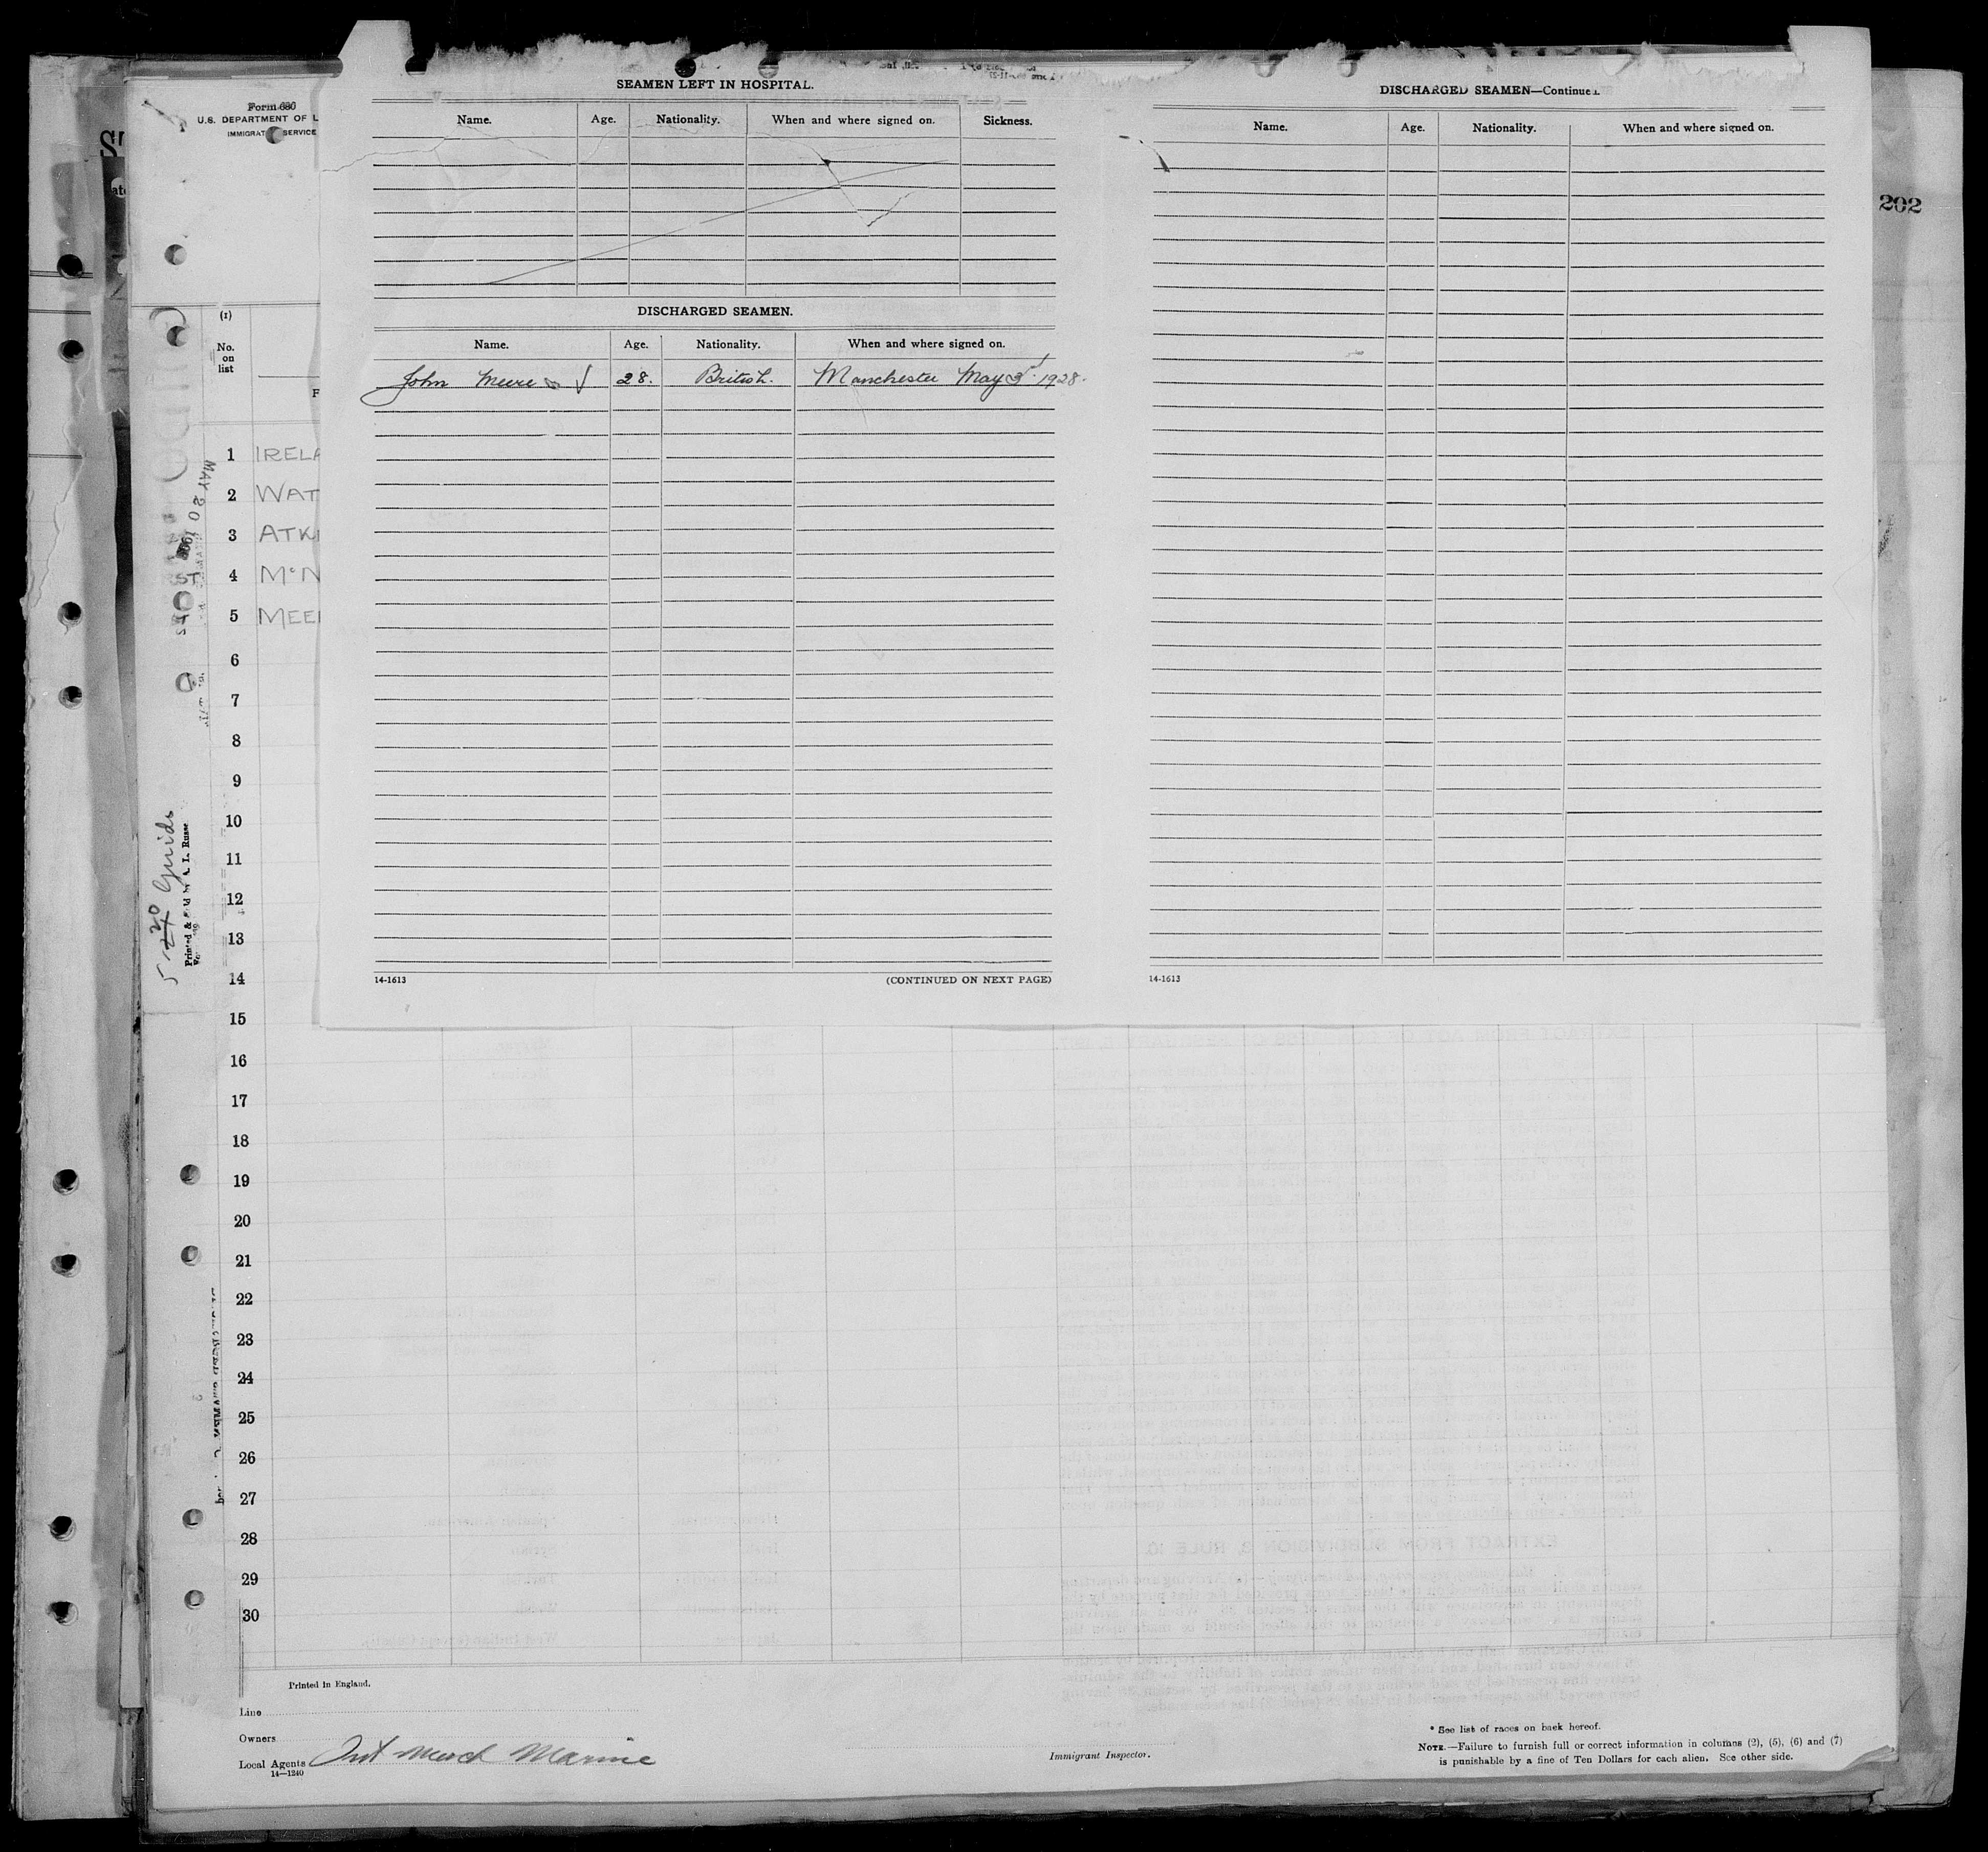 SEAMEN LEFT IN HOSPITAL.
Name. Age. Nationality. When and where signed on. Sickness.
DISCHARGED SEAMEN.
Name. Age. Nationality. When and where signed on.
John 28. British. Manchester May 3rd 1928.
14-1613 (CONTINUED ON NEXT PAGE)
DISCHARGED SEAMEN—Continued.
Name. Age. Nationality. When and where signed on.
14-1613
202
Form 680
U.S. DEPARTMENT OF L
IMMIGRAT SERVICE
(1)
No.
on
list
F
MAY 20
1 IRELA
2 WAT
3 ATKI
4 McN
5 MEE
6
7
8
9
10
11
12
13
14
15
16
17
18
19
20
21
22
23
24
25
26
27
28
29
30
Printed & by A. L. Russe
Printed in England.
Line
Owners
Local Agents Int Merch Marine
14—1240
Immigrant Inspector.
* See list of races on back hereof.
NOTE.—Failure to furnish full or correct information in columns (2), (5), (6) and (7)
is punishable by a fine of Ten Dollars for each alien. See other side.